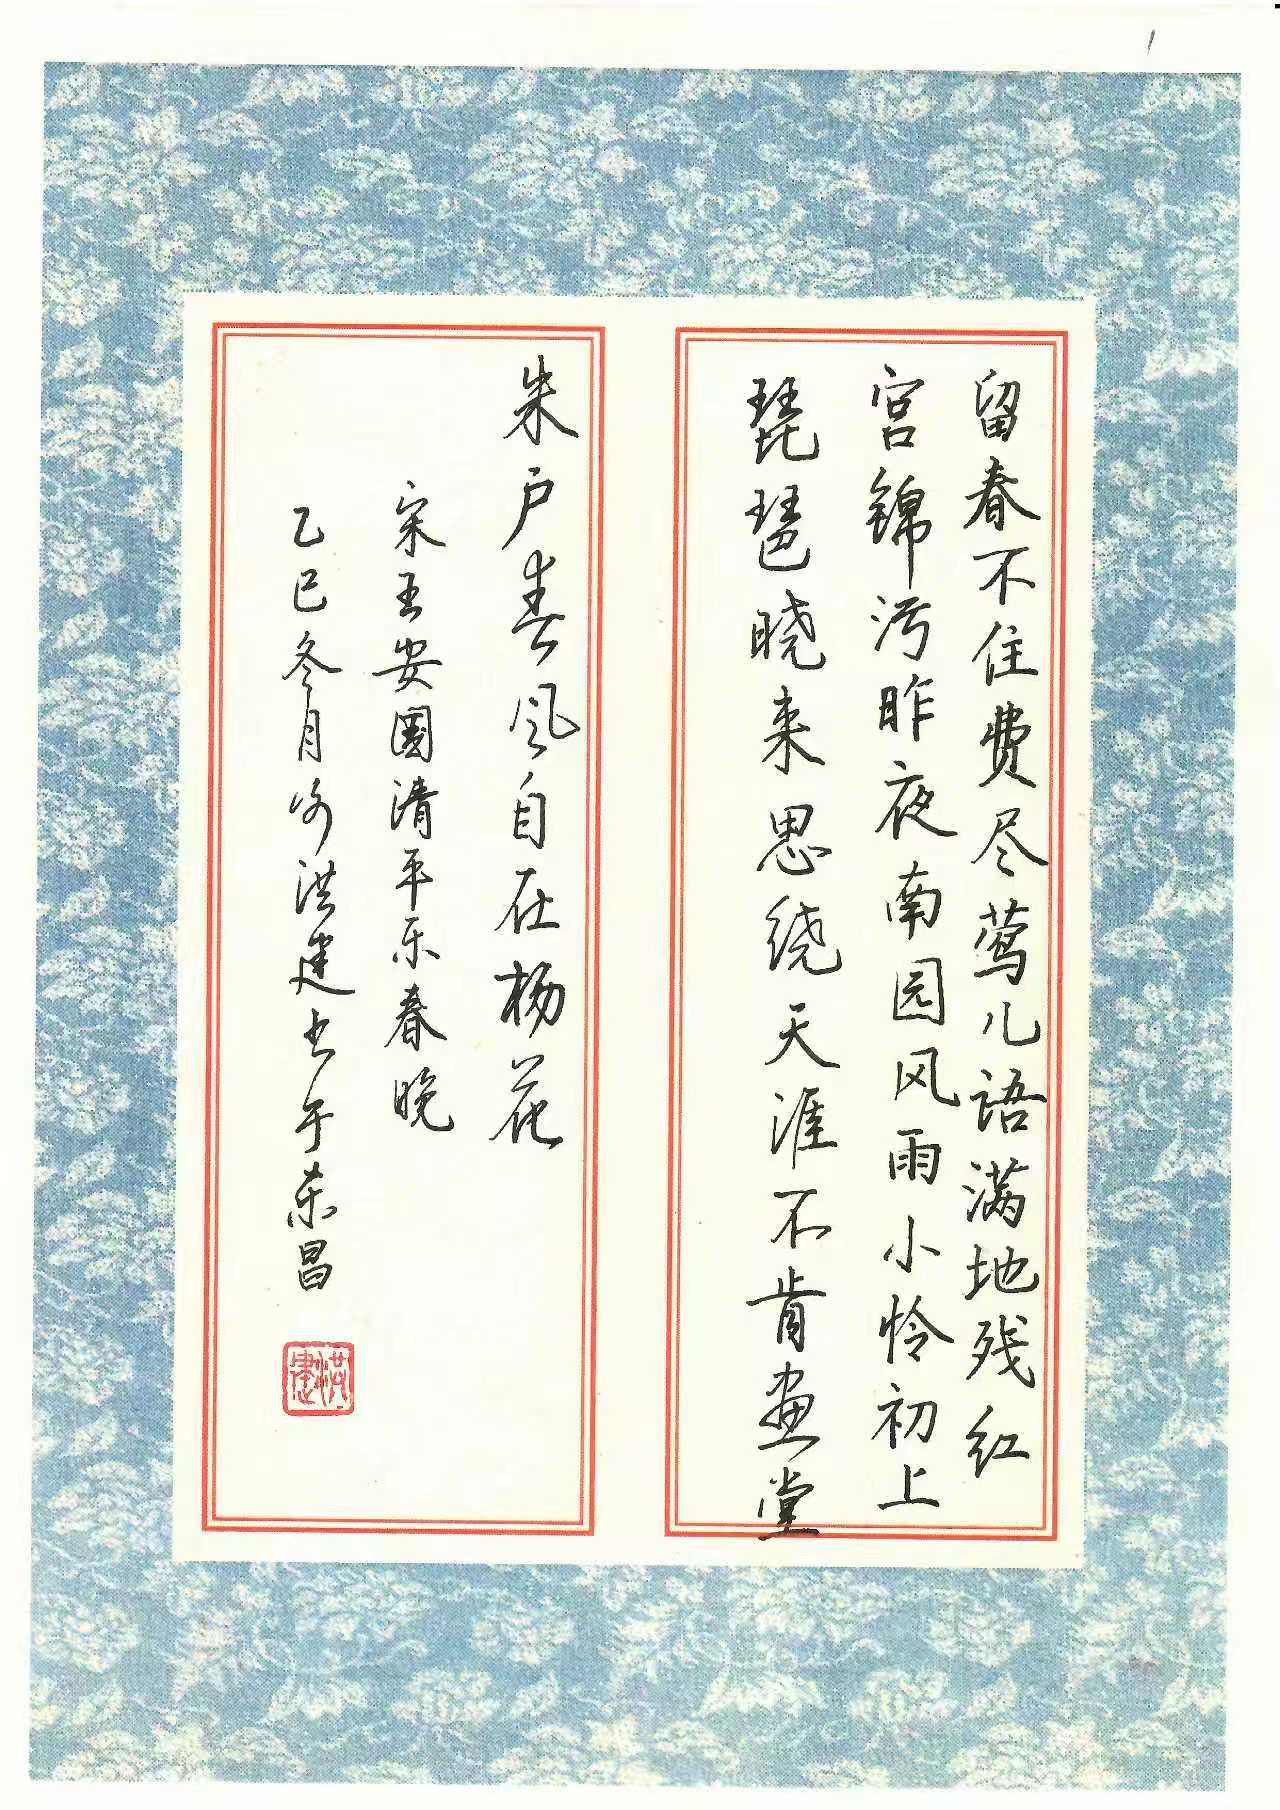 留春不住费尽莺儿语满地残红
宫锦污昨夜南园风雨小怜初上
琵琶晓来思绕天涯不肯画堂
朱户春风自在杨花
宋王安國清平乐春晚
乙巳冬月 洪建书于东昌
洪建